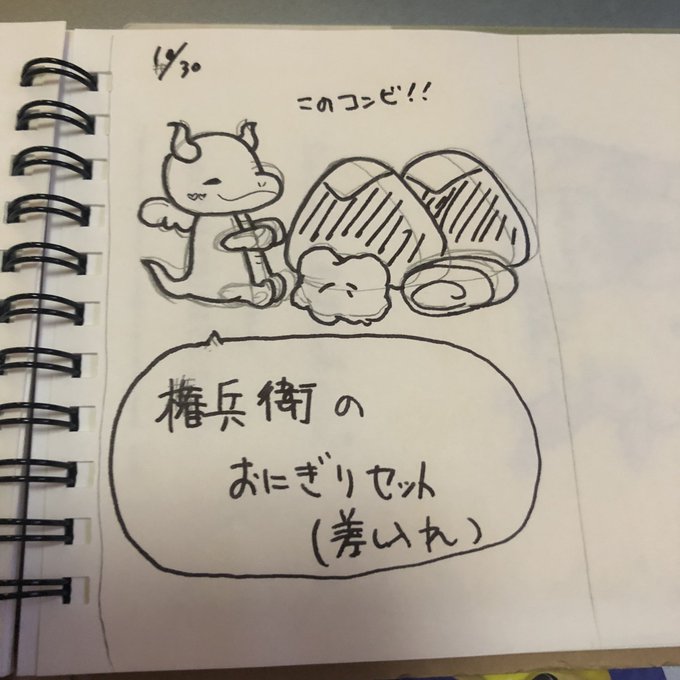 10/30
このコンビ!!
権兵衛の
おにぎりセット
(差し入れ)